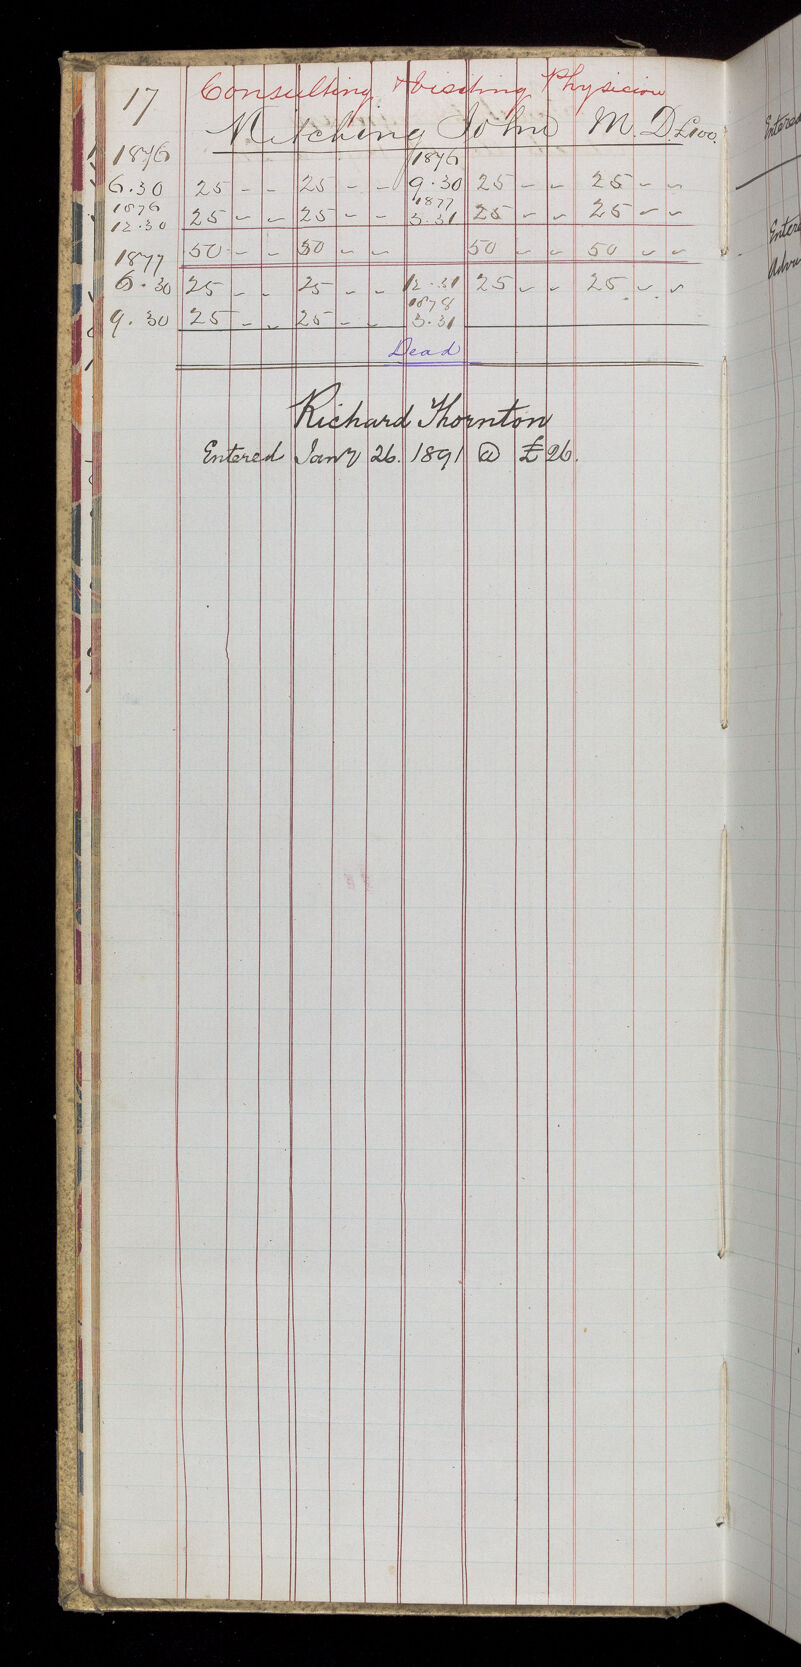 17 Consulting & Visiting Physician
Mitching John M.D. £100.
1876 1876
6.30 25 - - 25 - - 9.30 25 - - 25 - -
1876 1877
12.30 25 - - 25 - - 3.31 25 - - 25 - -
50 - - 50 - - 50 - - 50 - -
1877
6.30 25 - - 25 - - 12.31 25 - - 25 - -
1878
9.30 25 - - 25 - - 3.31
Dead
Richard Thornton
Entered Jany 26. 1891 @ £26.
Entered